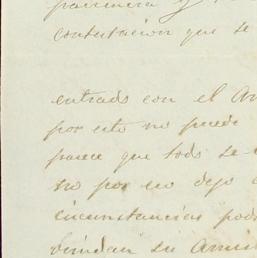 paciencia y
contestacion que se
entrado con el
por esto no puede
parece que todo se
no por eso dejo
circunstancias pod
brindan su Amis